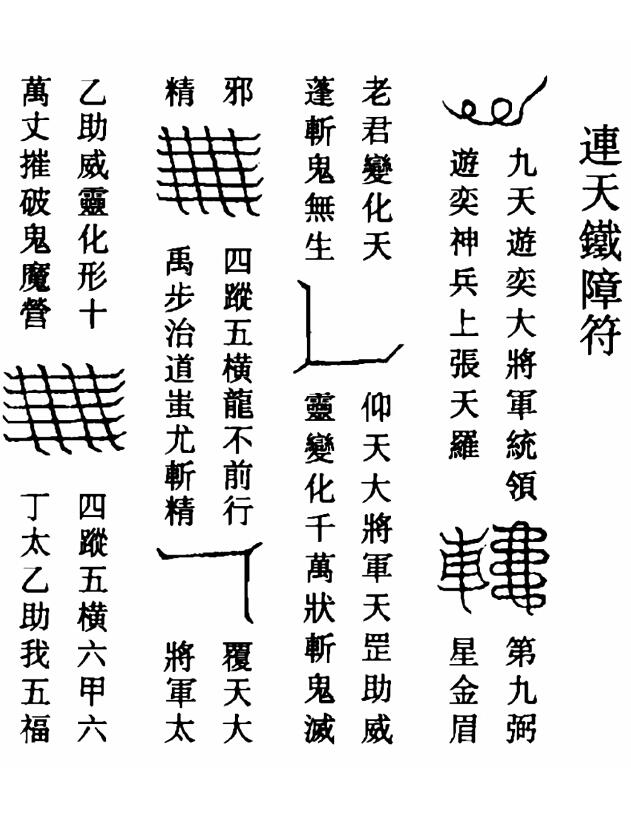 連天鐵障符
九天遊奕大將軍統領
遊奕神兵上張天羅
第九弼
星金眉
老君變化天
蓬斬鬼無生
仰天大將軍天罡助威
靈變化千萬狀斬鬼滅
邪
精
四蹤五橫龍不前行
禹步治道蚩尤斬精
覆天大
將軍太
乙助威靈化形十
萬丈摧破鬼魔營
四蹤五橫六甲六
丁太乙助我五福